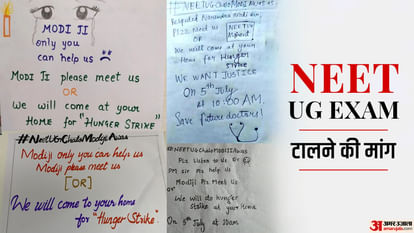 MODI JI
only you
can help us
MODI JI please meet us
OR
We will come at your
HOME for "HUNGER STRIKE"
Respected Narendra Modi Sir
Plzz Meet us
OR
NEETUG
We will come at your
home for Hunger
STRIKE
WE WANT JUSTICE
On 5th July
at 10:00 AM.
Save future doctors!
#NEETUGChaloModijiAwas
Modiji only you can help us
Modiji please meet us
[OR]
We will come to your home
for "Hunger Strike."
#NEETUGChaloMODIJIAwas
Plz Listen to us OR
PM sir Plz help us
Modiji Plz Meet us
OR
We will do hunger
Strike at your Home
On 5th July at 10am
NEET
UG EXAM
टालने की मांग
अमर उजाला
amarujala.com